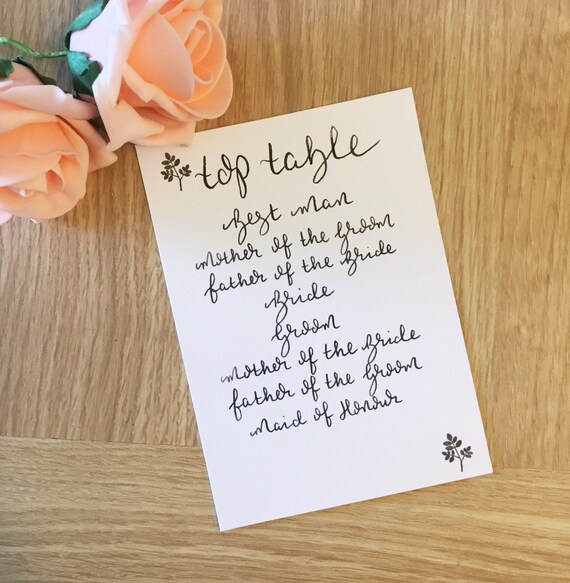 top table
Best Man
Mother of the Groom
father of the Bride
Bride
Groom
Mother of the Bride
father of the Groom
Maid of Honour